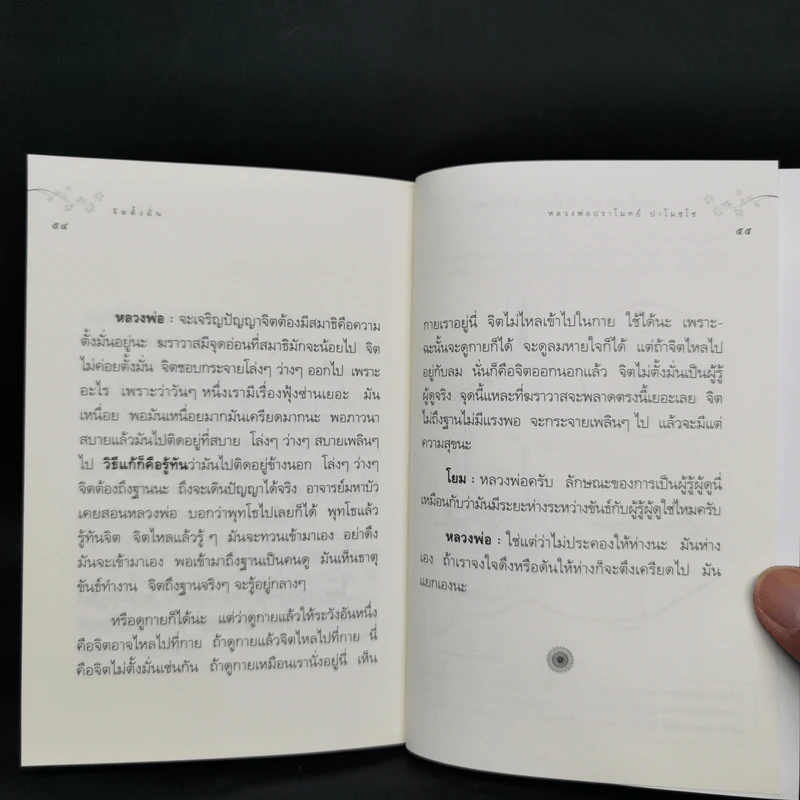 จิตตั้งมั่น
๕๔
หลวงพ่อ : จะเจริญปัญญาจิตต้องมีสมาธิคือความ
ตั้งมั่นอยู่นะ ฆราวาสมีจุดอ่อนที่สมาธิมักจะน้อยไป จิต
ไม่ค่อยตั้งมั่น จิตชอบกระจายโล่งๆ ว่างๆ ออกไป เพราะ
อะไร เพราะว่าวันๆ หนึ่งเรามีเรื่องฟุ้งซ่านเยอะ มัน
เหนื่อย พอมันเหนื่อยมากมันเครียดมากนะ พอภาวนา
สบายแล้วมันไปติดอยู่ที่สบาย โล่งๆ ว่างๆ สบายเพลินๆ
ไป วิธีแก้ก็คือรู้ทันว่ามันไปติดอยู่ข้างนอก โล่งๆ ว่างๆ
จิตต้องถึงฐานนะ ถึงจะเดินปัญญาได้จริง อาจารย์มหาบัว
เคยสอนหลวงพ่อ บอกว่าพุทโธไปเลยก็ได้ พุทโธแล้ว
รู้ทันจิต จิตไหลแล้วรู้ๆ มันจะทวนเข้ามาเอง อย่าดึง
มันจะเข้ามาเอง พอเข้ามาถึงฐานเป็นคนดู มันเห็นธาตุ
ขันธ์ทำงาน จิตถึงฐานจริงๆ จะรู้อยู่กลางๆ
หรือดูกายก็ได้นะ แต่ว่าดูกายแล้วให้ระวังอันหนึ่ง
คือจิตอาจไหลไปที่กาย ถ้าดูกายแล้วจิตไหลไปที่กาย นี่
คือจิตไม่ตั้งมั่นเช่นกัน ถ้าดูกายเหมือนเรานั่งอยู่นี่ เห็น
หลวงพ่อปราโมทย์ ปาโมชฺโช
๕๕
กายเราอยู่นี่ จิตไม่ไหลเข้าไปในกาย ใช้ได้นะ เพราะ-
ฉะนั้นจะดูกายก็ได้ จะดูลมหายใจก็ได้ แต่ถ้าจิตไหลไป
อยู่กับลม นั่นก็คือจิตออกนอกแล้ว จิตไม่ตั้งมั่นเป็นผู้รู้
ผู้ดูจริง จุดนี้แหละที่ฆราวาสจะพลาดตรงนี้เยอะเลย จิต
ไม่ถึงฐานไม่มีแรงพอ จะกระจายเพลินๆ ไป แล้วจะมีแต่
ความสุขนะ
โยม : หลวงพ่อครับ ลักษณะของการเป็นผู้รู้ผู้ดูนี่
เหมือนกับว่ามันมีระยะห่างระหว่างขันธ์กับผู้รู้ผู้ดูใช่ไหมครับ
หลวงพ่อ : ใช่แต่ว่าไม่ประคองให้ห่างนะ มันห่าง
เอง ถ้าเราจงใจดึงหรือดันให้ห่างก็จะตึงเครียดไป มัน
แยกเองนะ